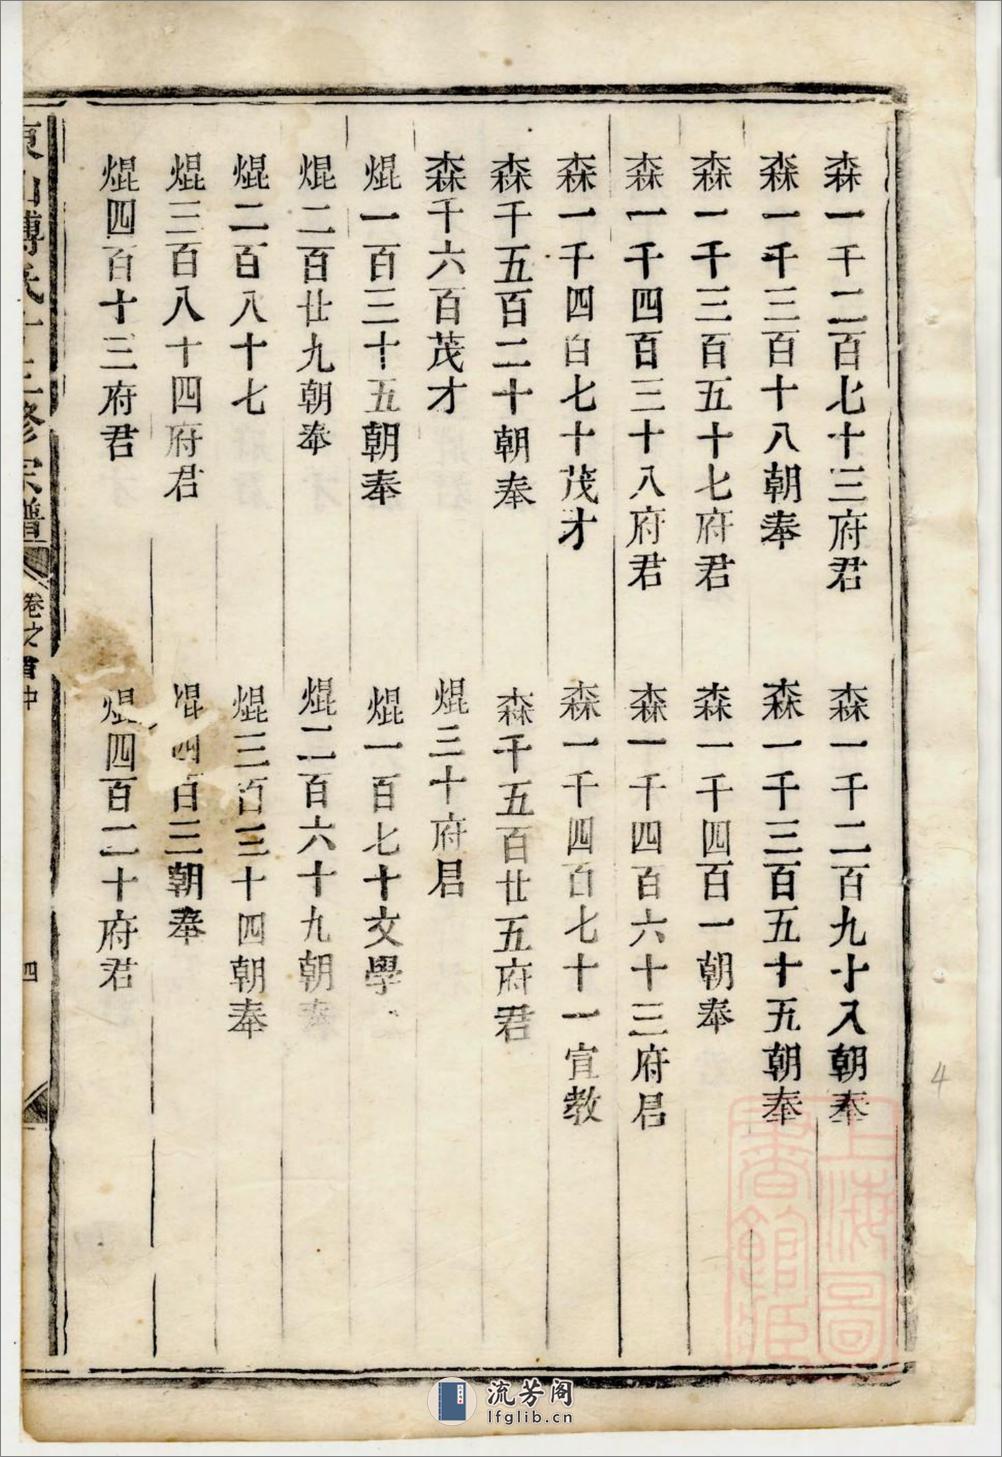 森一千二百七十三府君
森一千二百九十八朝奉
森一千三百十八朝奉
森一千三百五十五朝奉
森一千三百五十七府君
森一千四百一朝奉
森一千四百三十八府君
森一千四百六十三府君
森一千四百七十茂才
森一千四百七十一宣教
森千五百二十朝奉
森千五百廿五府君
森千六百茂才
焜三十府君
焜一百三十五朝奉
焜一百七十文學
焜二百廿九朝奉
焜二百六十九朝奉
焜二百八十七
焜三百三十四朝奉
焜三百八十四府君
焜四百三朝奉
焜四百十三府君
焜四百二十府君
東山傅氏十三修宗譜
卷之首中
四
4
上海圖
書館藏
流芳阁
lfglib.cn